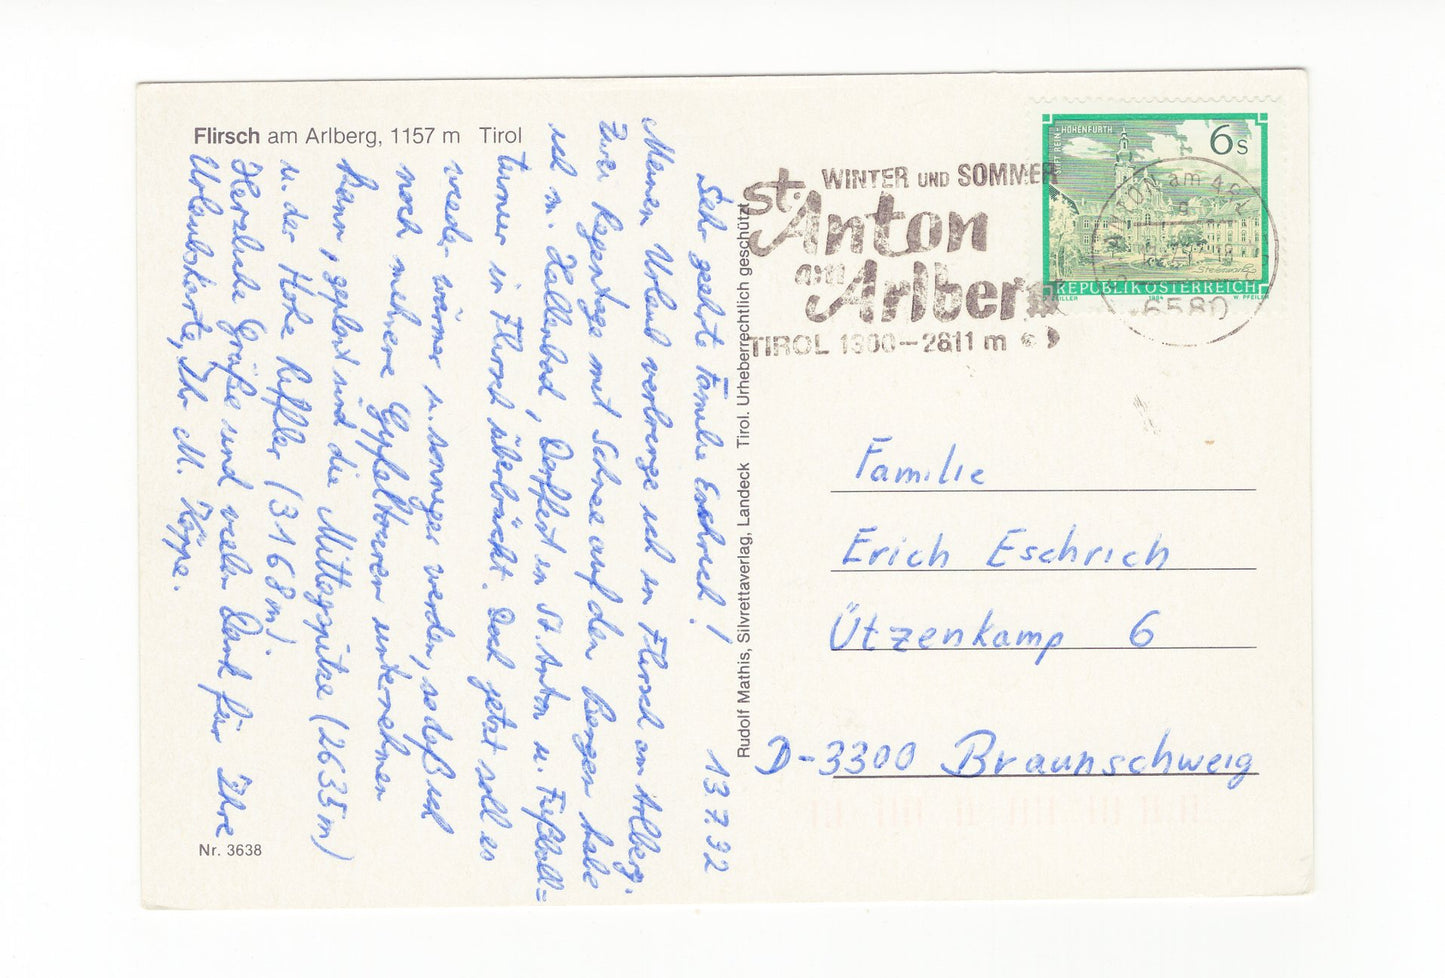 Flirsch am Arlberg, 1157 m Tirol
Sehr geehrte Familie Eschrich!
13.7.92
Meinen Urlaub verbringe ich in Flirsch am Arlberg.
Zwei Regentage mit Schnee auf den Bergen habe
ich m. Hallenbad, Dorffest in St. Anton u. Fußball=
turnier in Flirsch überbrückt. Doch jetzt soll es
wieder wärmer u. sonniger werden, sodaß ich
noch mehrere Gipfeltouren unternehmen
kann, geplant sind die Mittagspitze (2635 m)
u. der Hohe Riffler (3168 m).
Herzliche Grüße und vielen Dank für Ihre
Urlaubskarte, Ihr M. Köppe.
Nr. 3638
Rudolf Mathis, Silvrettaverlag, Landeck Tirol. Urheberrechtlich geschützt
WINTER UND SOMMER
St. Anton
am Arlberg
TIROL 1300–2811 m
STIFT REIN-HOHENFURTH
6 S
REPUBLIK ÖSTERREICH
1984 W. PFEILER
ANTON am ARL
6580
Familie
Erich Eschrich
Ützenkamp 6
D-3300 Braunschweig